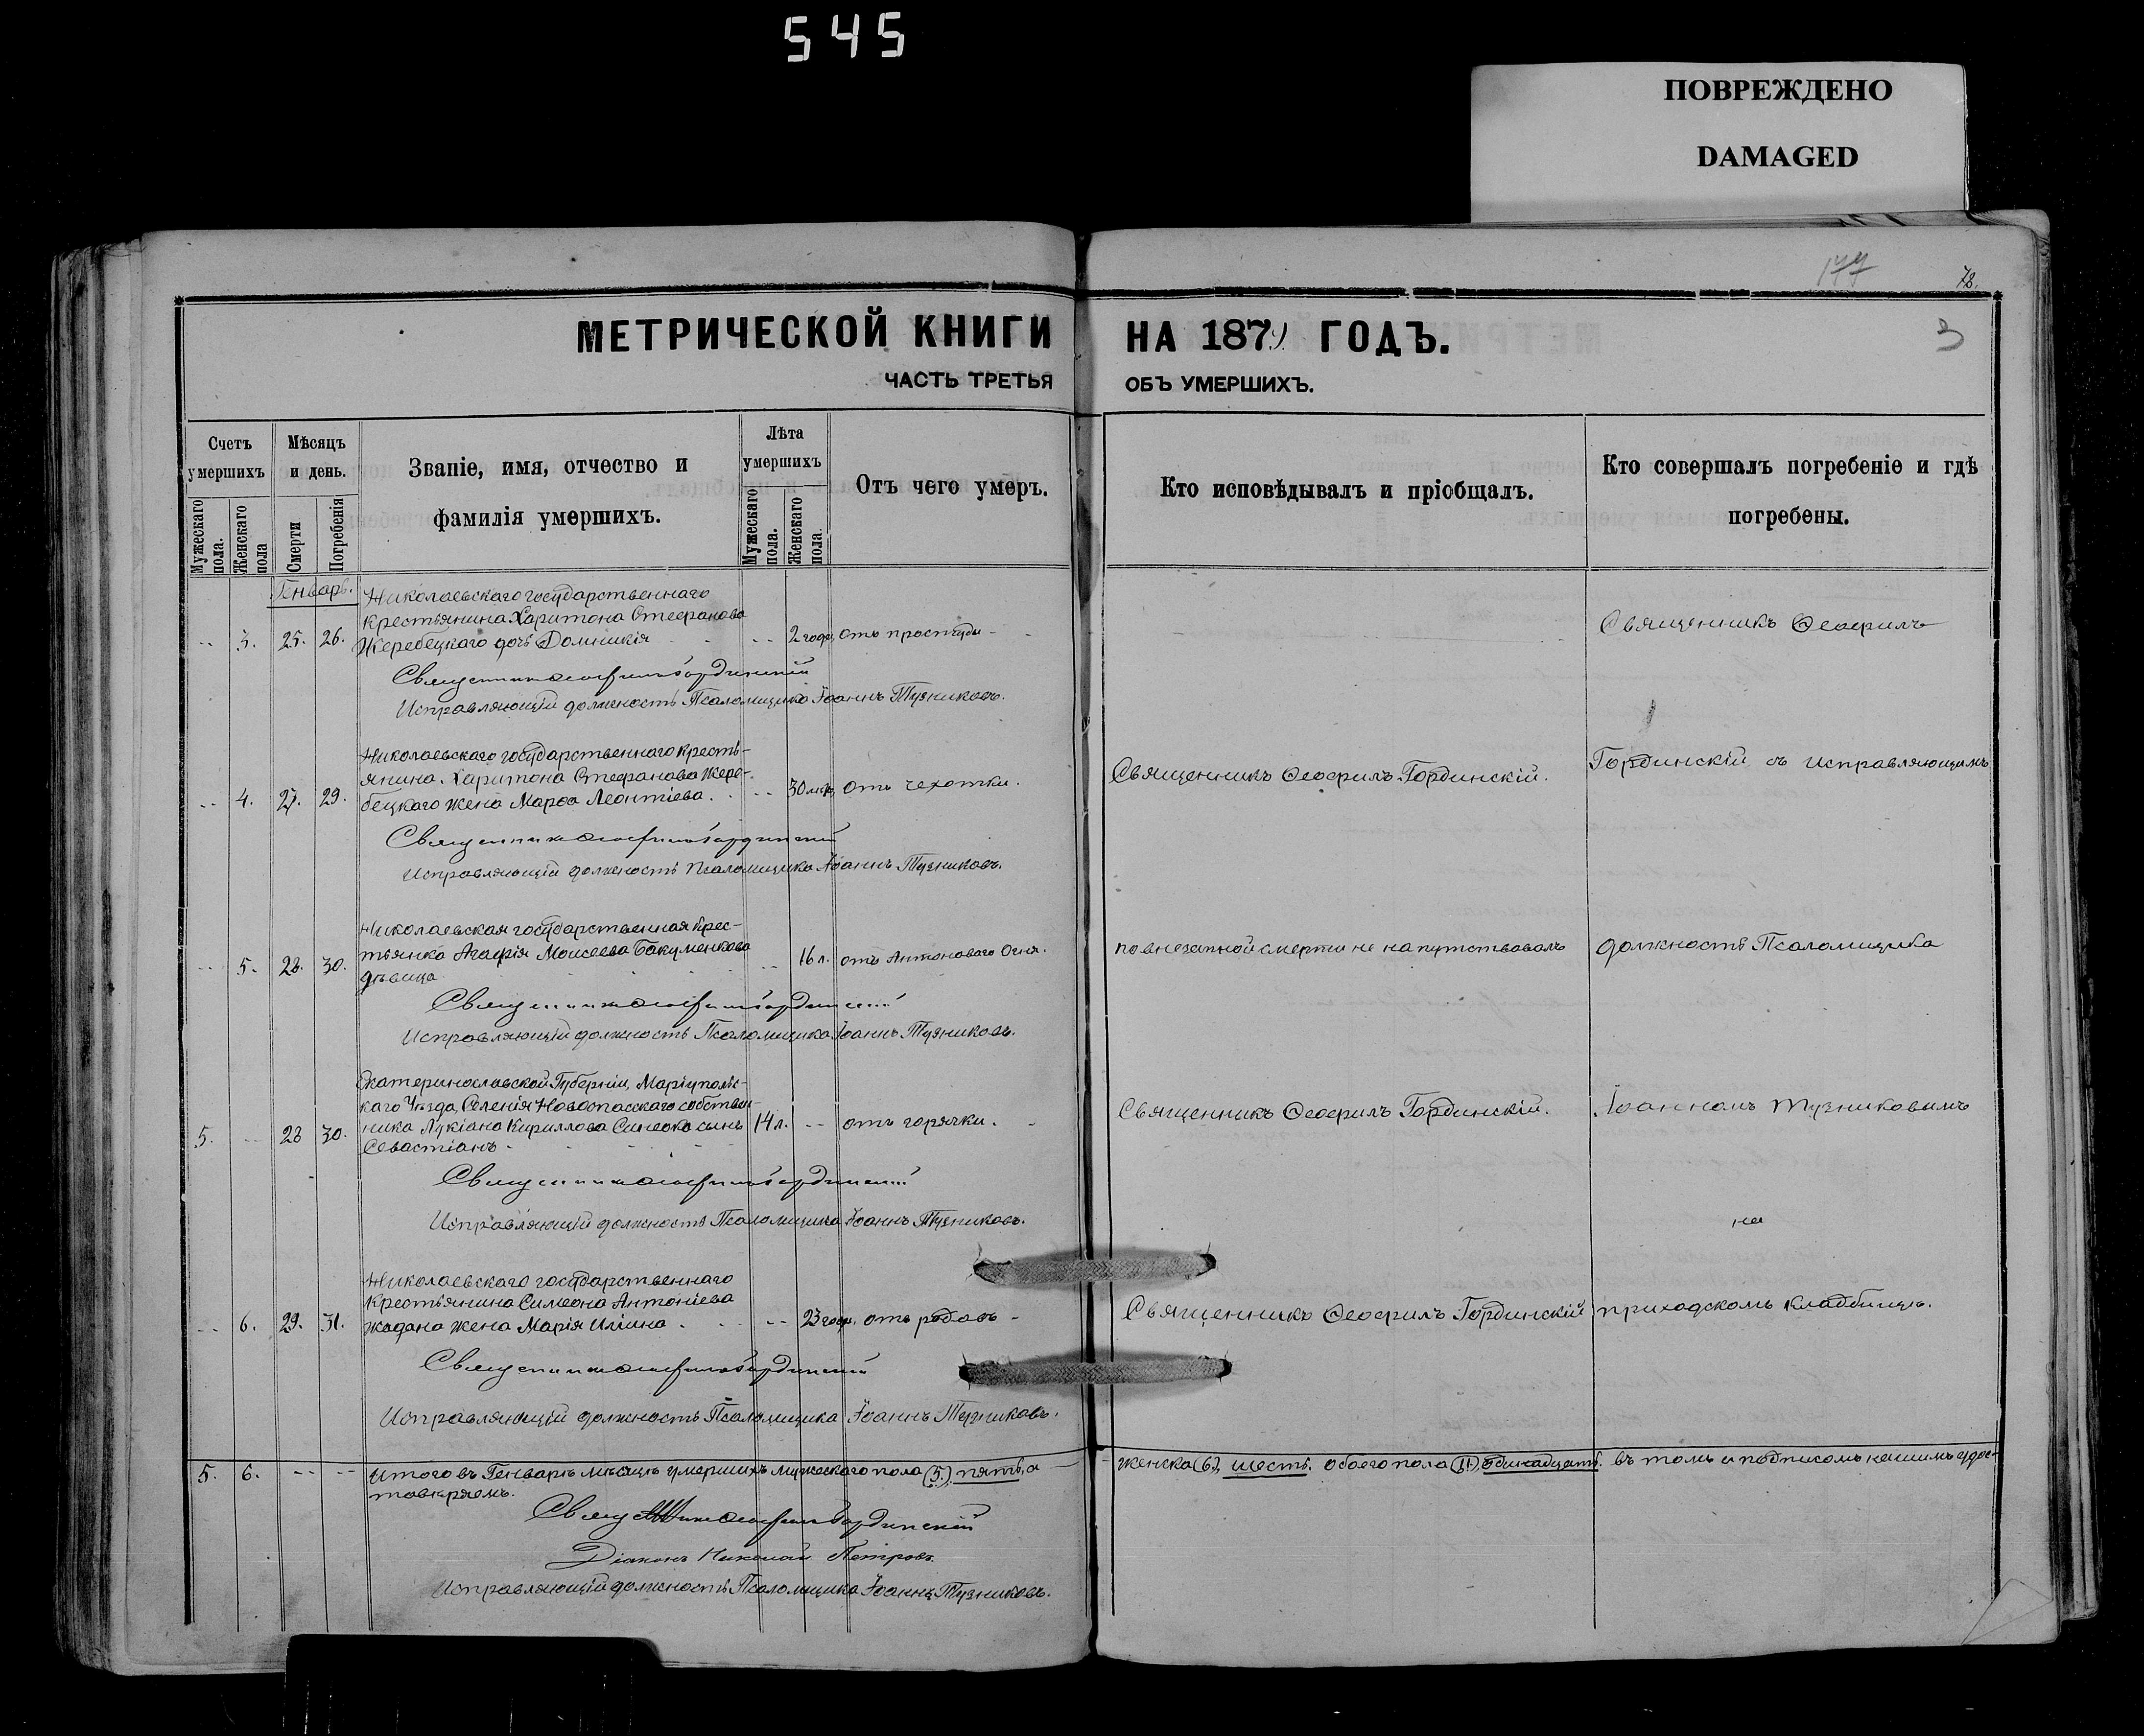 545
ПОВРЕЖДЕНО
DAMAGED
177
78.
3
МЕТРИЧЕСКОЙ КНИГИ НА 1879 ГОДЪ.
ЧАСТЬ ТРЕТЬЯ ОБЪ УМЕРШИХЪ.
Счетъ умершихъ
Мужескаго пола.
Женскаго пола
Мѣсяцъ и день.
Смерти
Погребенія
Званіе, имя, отчество и
фамилія умершихъ.
Лѣта умершихъ
Мужескаго пола.
Женскаго пола.
Отъ чего умеръ.
Кто исповѣдывалъ и пріобщалъ.
Кто совершалъ погребеніе и гдѣ
погребены.
Генварь.
Николаевскаго государственнаго
крестьянина Харитона Стефанова
-- 3. 25. 26. Жеребецкаго дочь Домникія -- 2 года, отъ простуды - Священникъ Ѳеофилъ
Священникъ Ѳеофилъ Гординскій
Исправляющій должность Псаломщика Іоаннъ Тузниковъ.
Николаевскаго государственнаго кресть-
янина Харитона Стефанова Жере-
-- 4. 27. 29. бецкаго жена Марѳа Леонтіева. -- 30 лѣтъ, отъ чехотки. Священникъ Ѳеофилъ Гординскій. Гординскій съ исправляющимъ
Священникъ Ѳеофилъ Гординскій
Исправляющій должность Псаломщика Іоаннъ Тузниковъ.
Николаевская государственная крес-
тьянка Агафія Моисеева Бакуменкова
-- 5. 28. 30. дѣвица -- 16 л. отъ Антоноваго Огня. по внезапной смерти не напутствовалъ должность Псаломщика
Священникъ Ѳеофилъ Гординскій
Исправляющій должность Псаломщика Іоаннъ Тузниковъ.
Екатеринославской Губерніи, Маріупольс-
каго Уѣзда, Селенія Новоспасскаго собствен-
5. -- 28 30. ника Лукіана Кириллова Синеока сынъ 14 л. -- отъ горячки. Священникъ Ѳеофилъ Гординскій. Іоанномъ Тузниковымъ
Севастіанъ -
Священникъ Ѳеофилъ Гординскій
Исправляющій должность Псаломщика Іоаннъ Тузниковъ.
на
Николаевскаго государственнаго
Крестьянина Симеона Антоніева
-- 6. 29. 31. Жадана жена Марія Иліина. -- 23 года, отъ родовъ - Священникъ Ѳеофилъ Гординскій приходскомъ кладбищѣ.
Священникъ Ѳеофилъ Гординскій
Исправляющій должность Псаломщика Іоаннъ Тузниковъ.
5. 6. -- -- Итого въ Генварѣ мѣсяцѣ умершихъ мужескаго пола (5.) пять, а женска (6.), шесть. обоего пола (11.), одинадцать. въ томъ и подписомъ нашимъ удос-
товѣряемъ.
Священникъ Ѳеофилъ Гординскій
Діаконъ Николай Петровъ.
Исправляющій должность Псаломщика Іоаннъ Тузниковъ.